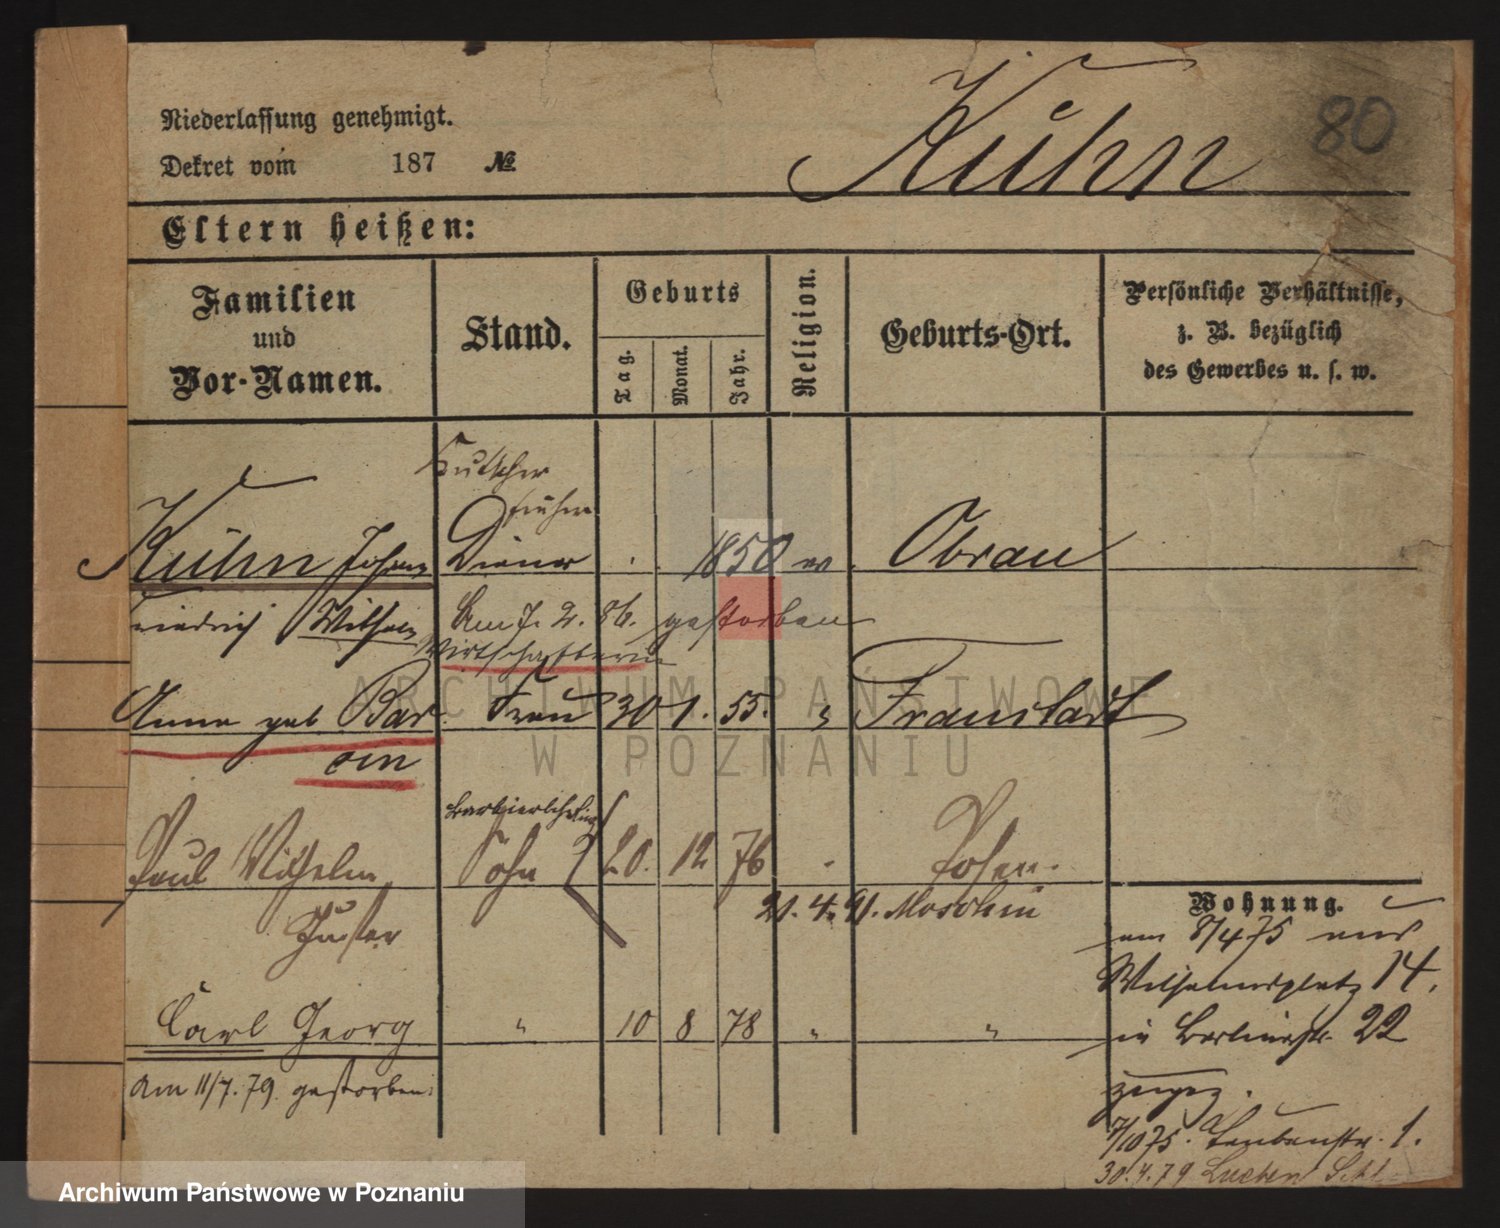 Niederlassung genehmigt.
Dekret vom 187 №
Kühn
80
Eltern heißen:
Familien und Vor-Namen.
Stand.
Geburts
Tag.
Monat.
Jahr.
Religion.
Geburts-Ort.
Persönliche Verhältnisse, z. B. bezüglich des Gewerbes u. s. w.
Kutscher
früher
Kühn Johann Diener 1850 ev. Obrau
Friedrich Wilhelm Am 7. 2. 86. gestorben
Wirtschafterin
Anna geb. Bar- Frau 30 1. 55. " Fraustadt
oin
Barbierlehrling
Paul Wilhelm Sohn 20. 12 76 Posen.
Gustav
21. 4. 91. Moschin
Carl Georg " 10 8 78 " "
Am 11/7. 79. gestorben.
Wohnung.
am 8/4 75 aus
Wilhelmsplatz 14.
in Berlinerstr. 22
zugez.
7/10 75. Taubenstr. 1.
30.4.79
ARCHIWUM PAŃSTWOWE
W POZNANIU
Archiwum Państwowe w Poznaniu